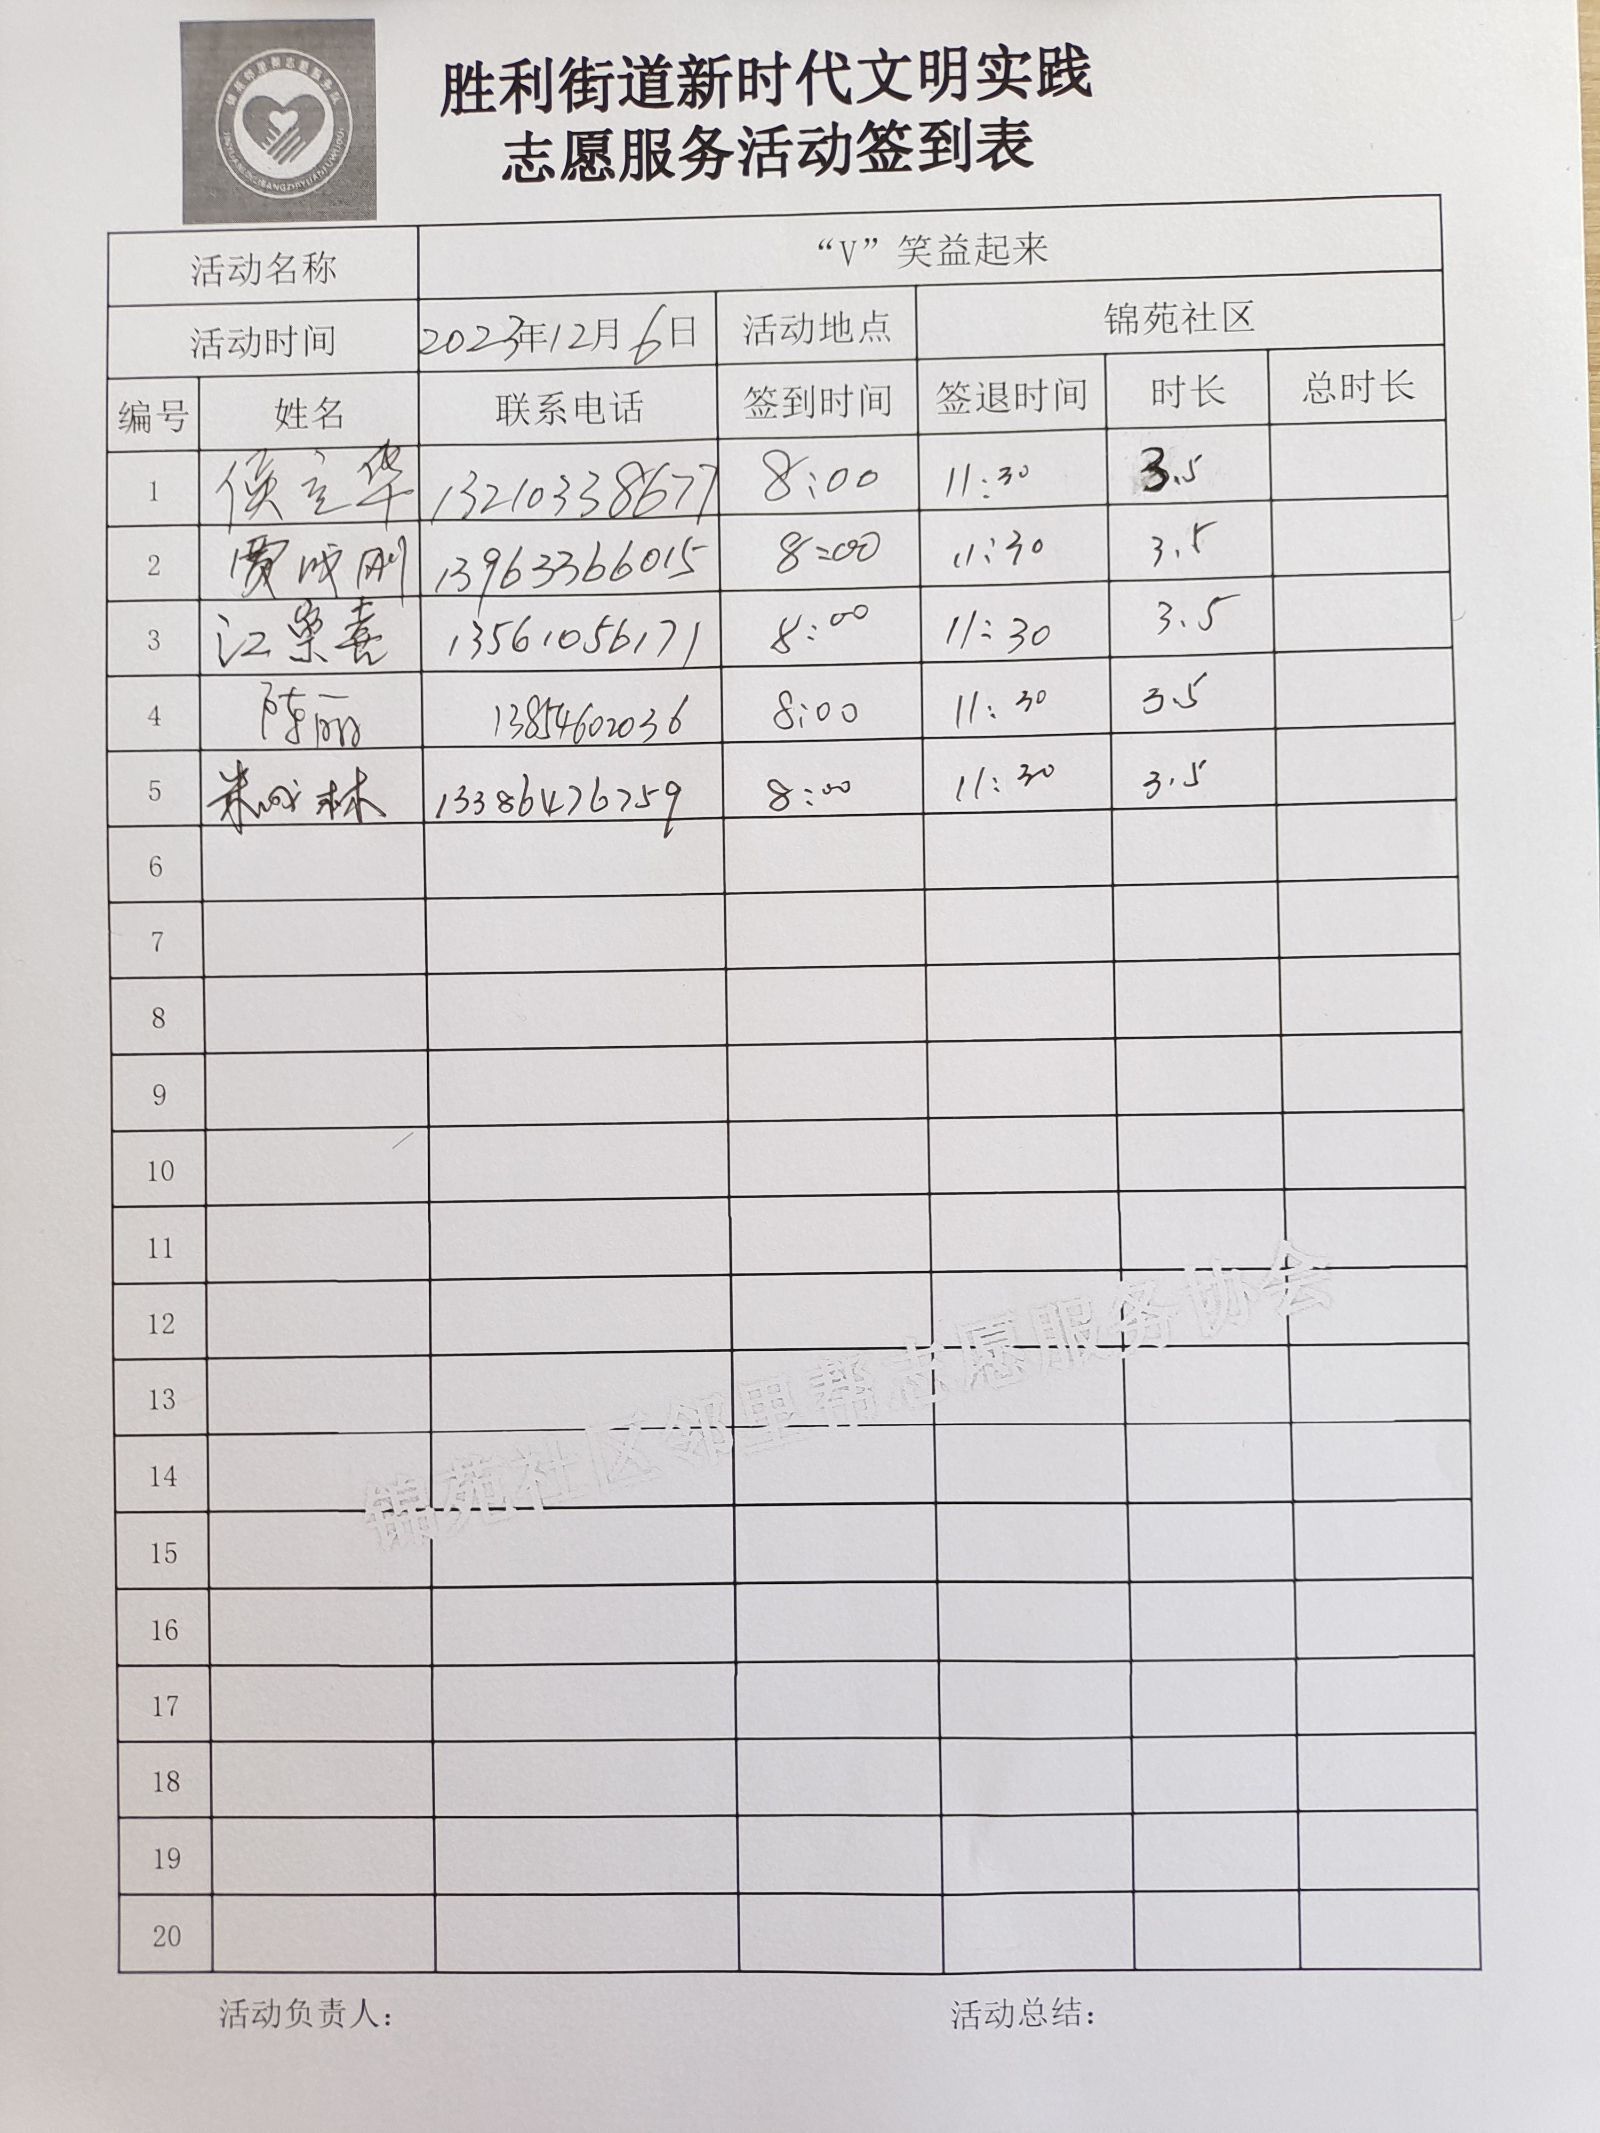 胜利街道新时代文明实践
志愿服务活动签到表
活动名称 “V”笑益起来
活动时间 2023年12月6日 活动地点 锦苑社区
编号 姓名 联系电话 签到时间 签退时间 时长 总时长
1 侯立华 13210338677 8:00 11:30 3.5
2 贾成刚 13963366015 8:00 11:30 3.5
3 江荣喜 13561056171 8:00 11:30 3.5
4 陈丽 13854602036 8:00 11:30 3.5
5 米成林 13386476759 8:00 11:30 3.5
6
7
8
9
10
11
12
13
14
15
16
17
18
19
20
锦苑社区邻里帮志愿服务协会
活动负责人： 活动总结：